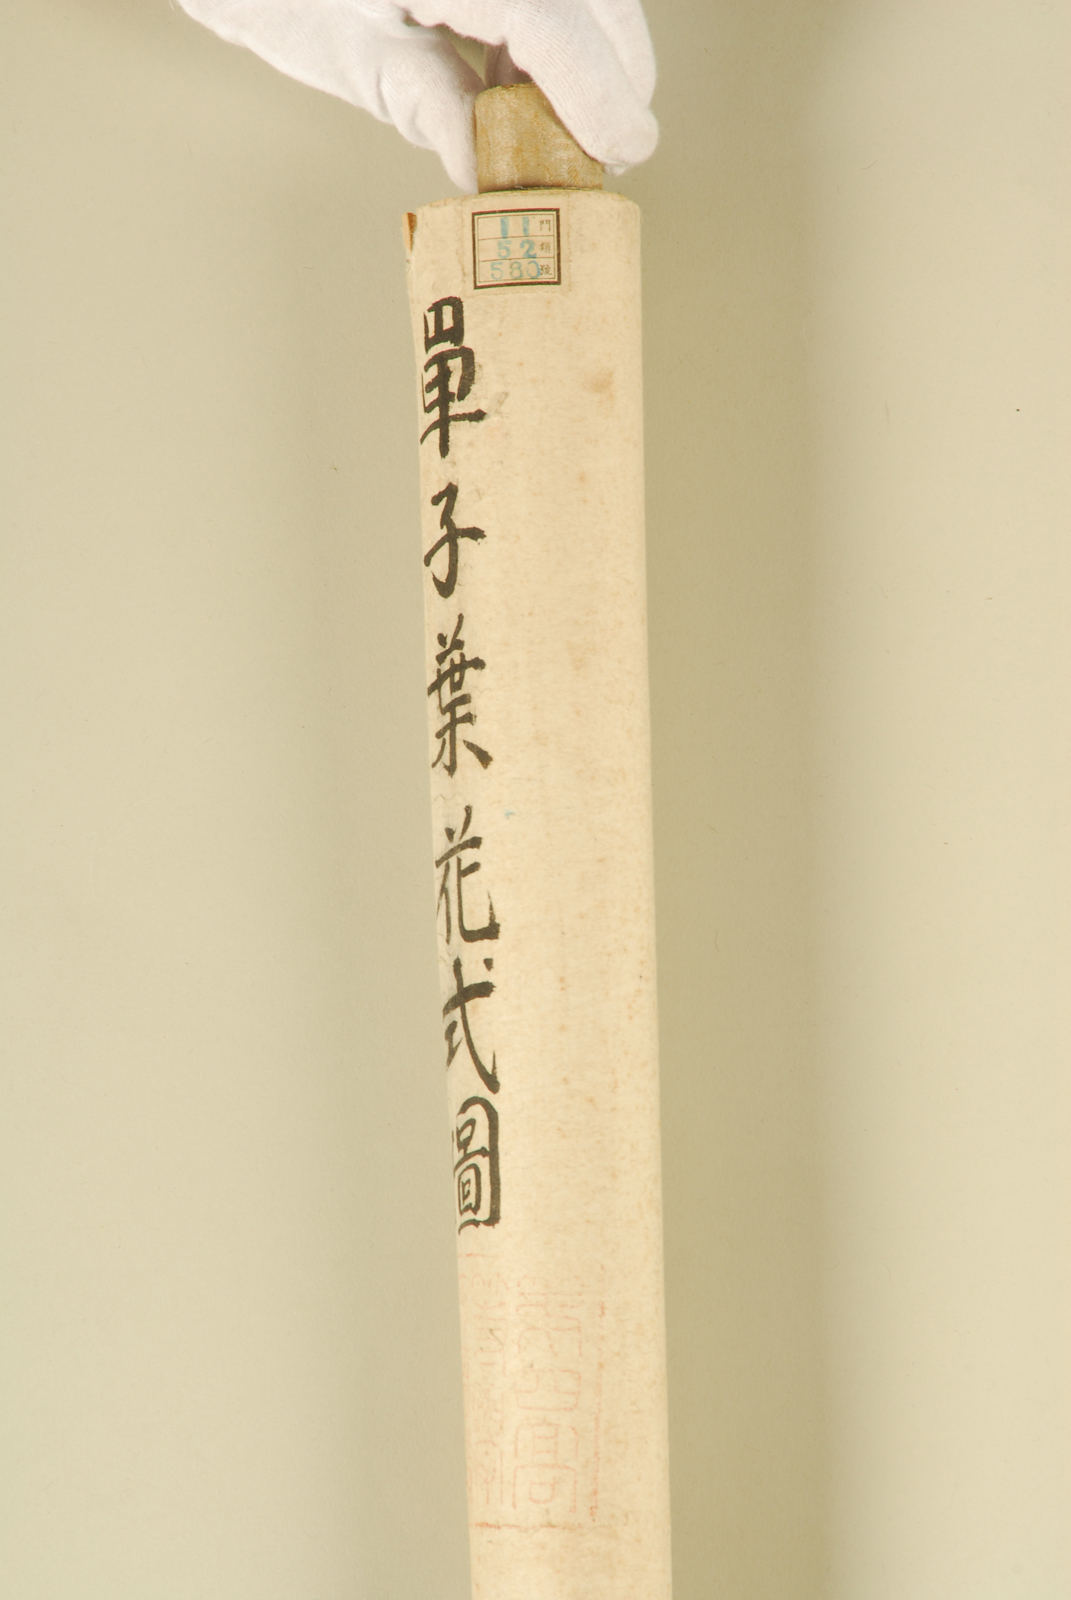 11門
52類
580號
單子葉花式圖